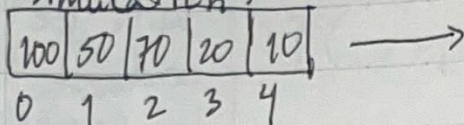 100 50 70 20 10
0 1 2 3 4